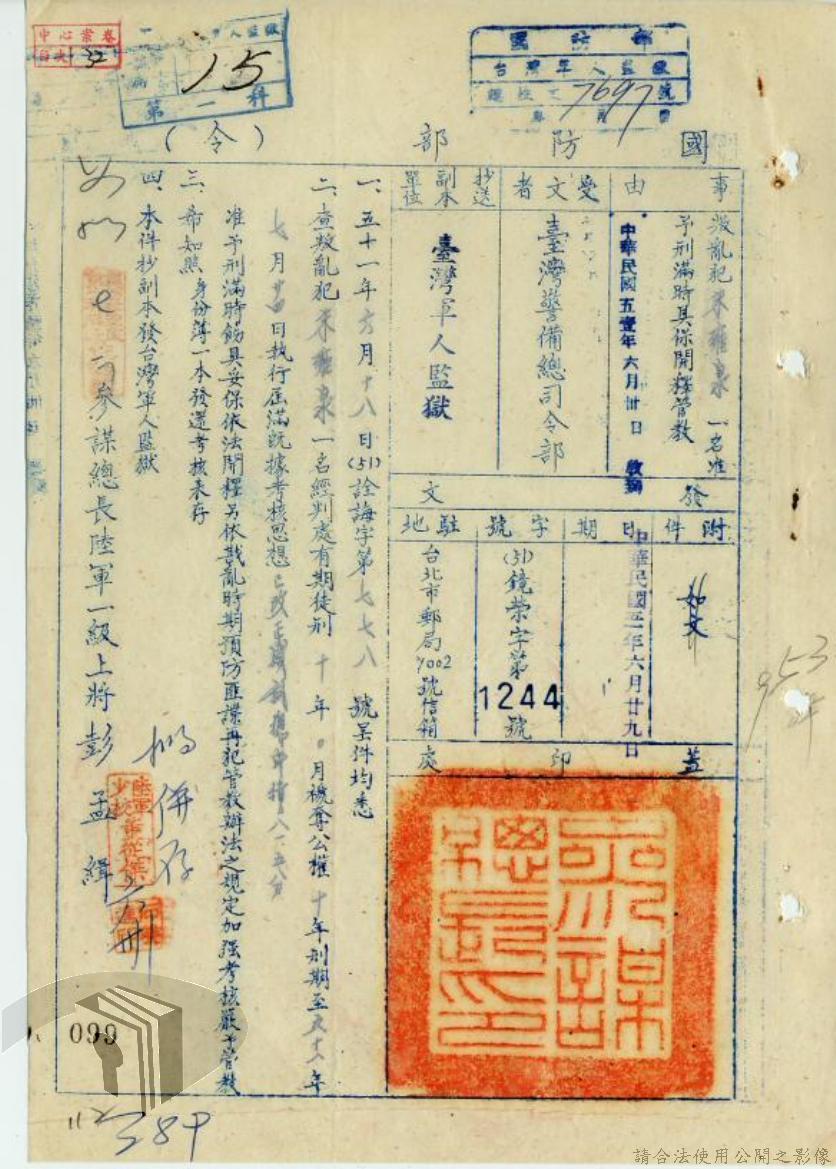 中心案卷
目次 32
15
第一科
國防部
台灣軍人監獄
7697 號
國防部
(令)
事由
叛亂犯
一名准
予刑滿時具保開釋管教
中華民國五壹年六月卅日
受文者
臺灣警備總司令部
抄送副本單位
臺灣軍人監獄
發文
附件
如文
日期
中華民國五一年六月廿九日
字號
(51)鏡荣字第
1244號
駐地
台北市郵局7002號信箱
蓋印處
參謀總長印
一、五十一年六月十八日(51)詮誨字第七七八號呈件均悉
二、查叛亂犯
一名經判處有期徒刑十年 月褫奪公權十年刑期至五十一年
七月廿四日執行屆滿既據考核思想已改正
准予刑滿時飭具妥保依法開釋另依戡亂時期預防匪諜再犯管教辦法之規定加強考核嚴予管教
三、希如照身份簿一本發還考核表存
四、本件抄副本發台灣軍人監獄
參謀總長陸軍一級上將彭孟緝
併存
953
099
112
384
請合法使用公開之影像